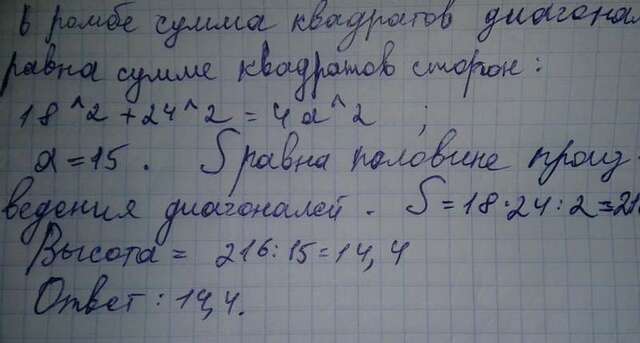 в ромбе сумма квадратов диагонал
равна сумме квадратов сторон:
18^2 + 24^2 = 4a^2 ;
a = 15 . S равна половине произ-
ведения диагоналей. S = 18·24:2=21
Высота = 216:15=14,4
Ответ: 14,4.